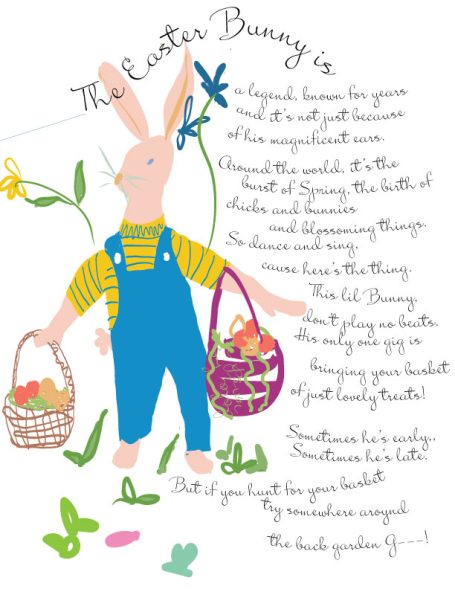 The Easter Bunny is
a legend, known for years
and it's not just because
of his magnificent ears.
Around the world, it's the
burst of Spring, the birth of
chicks and bunnies
and blossoming things.
So dance and sing,
cause here's the thing.
This lil Bunny,
don't play no beats.
His only one gig is
bringing your basket
of just lovely treats!
Sometimes he's early..
Sometimes he's late.
But if you hunt for your basket
try somewhere around
the back garden G---!